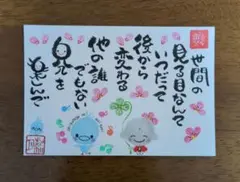 世間の
見る目なんて
いつだって
後から
変わる
他の誰
でもない
自分を
楽しんで